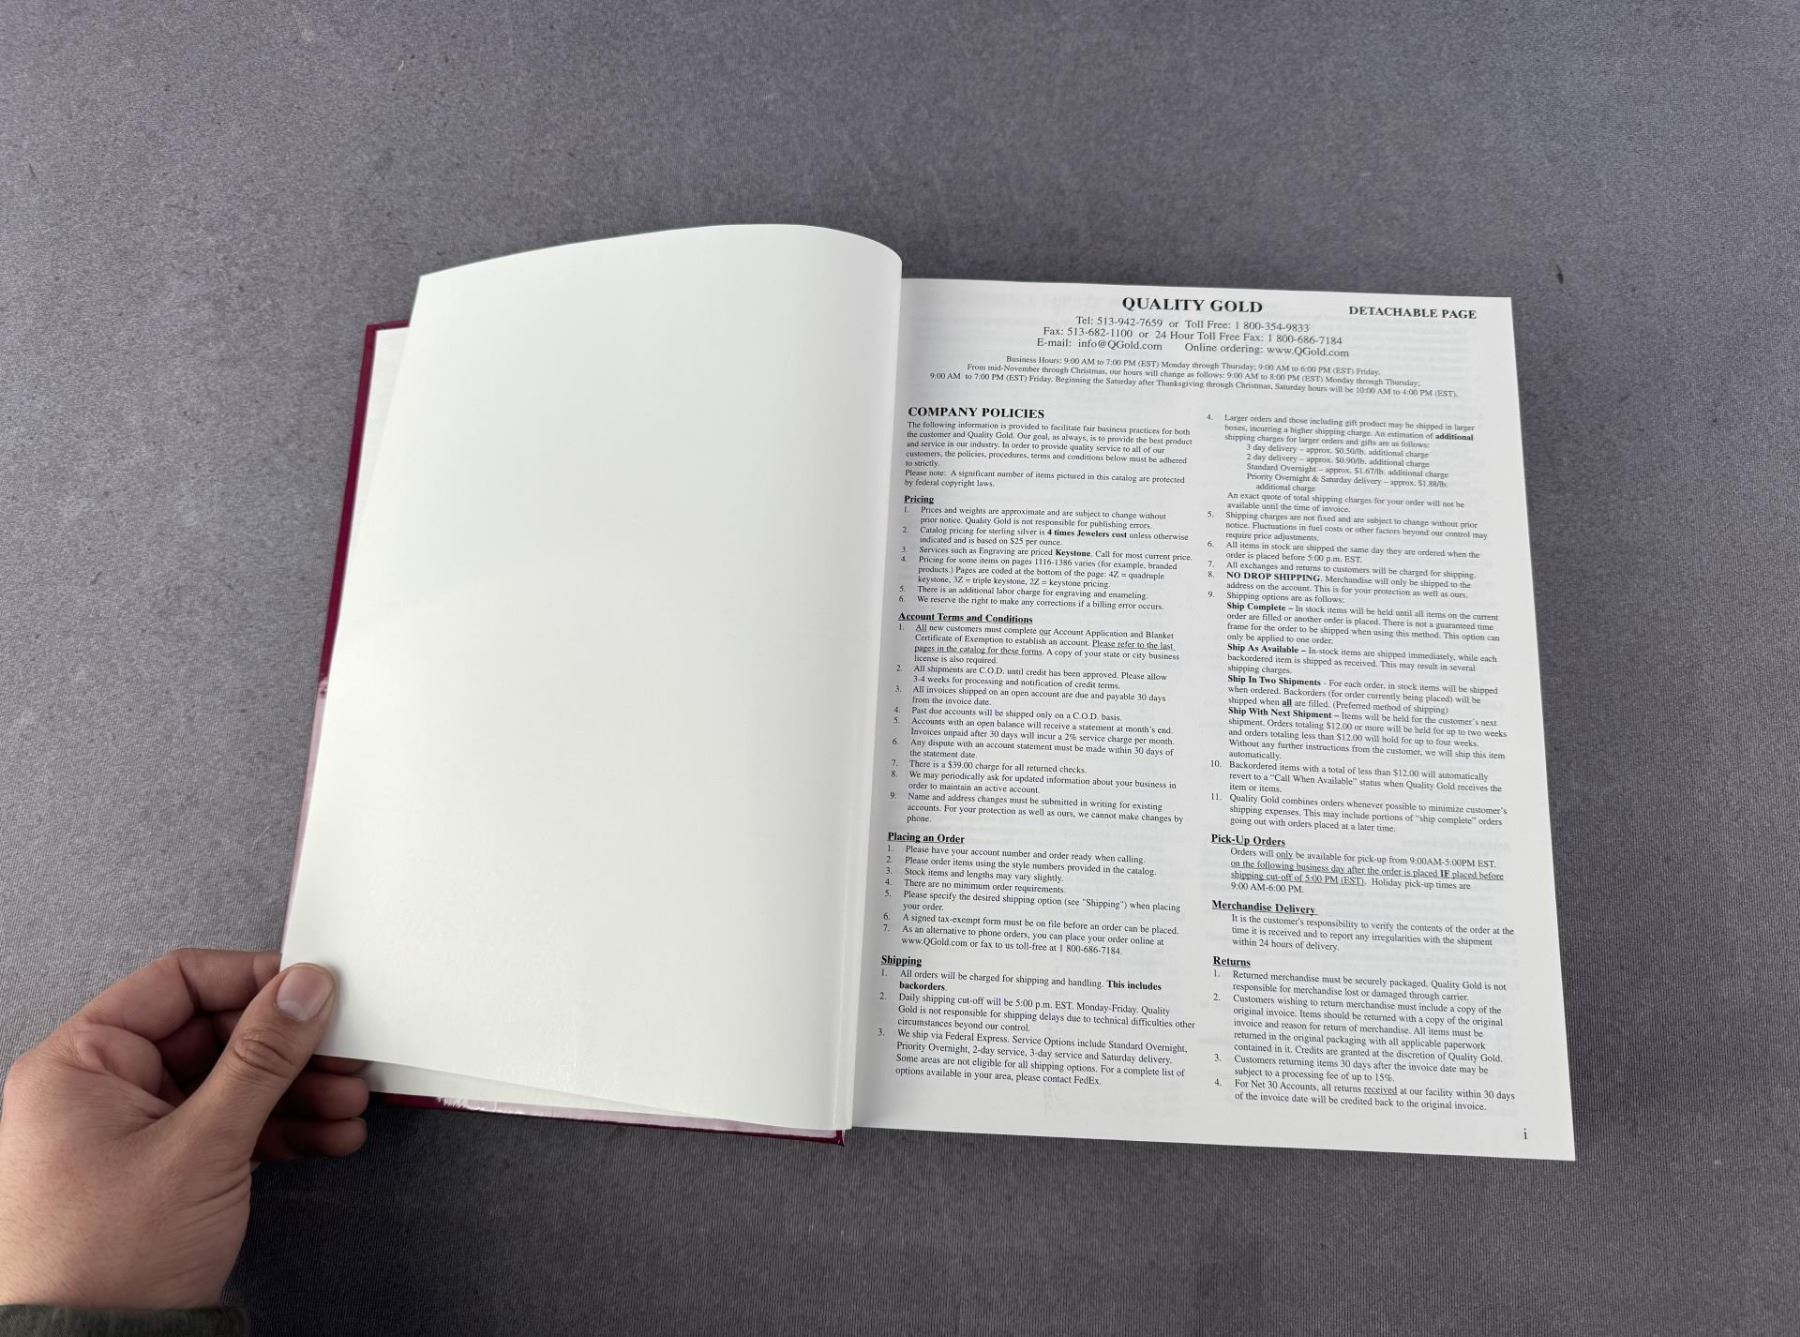 QUALITY GOLD
DETACHABLE PAGE
Tel: 513-942-7659 or Toll Free: 1 800-354-9833
Fax: 513-682-1100 or 24 Hour Toll Free Fax: 1 800-686-7184
E-mail: info@QGold.com Online ordering: www.QGold.com
Business Hours: 9:00 AM to 7:00 PM (EST) Monday through Thursday; 9:00 AM to 6:00 PM (EST) Friday.
From mid-November through Christmas, our hours will change as follows: 9:00 AM to 8:00 PM (EST) Monday through Thursday;
9:00 AM to 7:00 PM (EST) Friday. Beginning the Saturday after Thanksgiving through Christmas, Saturday hours will be 10:00 AM to 4:00 PM (EST).
COMPANY POLICIES
The following information is provided to facilitate fair business practices for both
the customer and Quality Gold. Our goal, as always, is to provide the best product
and service in our industry. In order to provide quality service to all of our
customers, the policies, procedures, terms and conditions below must be adhered
to strictly.
Please note: A significant number of items pictured in this catalog are protected
by federal copyright laws.
Pricing
1. Prices and weights are approximate and are subject to change without
prior notice. Quality Gold is not responsible for publishing errors.
2. Catalog pricing for sterling silver is 4 times Jewelers cost unless otherwise
indicated and is based on $25 per ounce.
3. Services such as Engraving are priced Keystone. Call for most current price.
4. Pricing for some items on pages 1116-1386 varies (for example, branded
products.) Pages are coded at the bottom of the page: 4Z = quadruple
keystone, 3Z = triple keystone, 2Z = keystone pricing.
5. There is an additional labor charge for engraving and enameling.
6. We reserve the right to make any corrections if a billing error occurs.
Account Terms and Conditions
1. All new customers must complete our Account Application and Blanket
Certificate of Exemption to establish an account. Please refer to the last
pages in the catalog for these forms. A copy of your state or city business
license is also required.
2. All shipments are C.O.D. until credit has been approved. Please allow
3-4 weeks for processing and notification of credit terms.
3. All invoices shipped on an open account are due and payable 30 days
from the invoice date.
4. Past due accounts will be shipped only on a C.O.D. basis.
5. Accounts with an open balance will receive a statement at month's end.
Invoices unpaid after 30 days will incur a 2% service charge per month.
6. Any dispute with an account statement must be made within 30 days of
the statement date.
7. There is a $39.00 charge for all returned checks.
8. We may periodically ask for updated information about your business in
order to maintain an active account.
9. Name and address changes must be submitted in writing for existing
accounts. For your protection as well as ours, we cannot make changes by
phone.
Placing an Order
1. Please have your account number and order ready when calling.
2. Please order items using the style numbers provided in the catalog.
3. Stock items and lengths may vary slightly.
4. There are no minimum order requirements.
5. Please specify the desired shipping option (see "Shipping") when placing
your order.
6. A signed tax-exempt form must be on file before an order can be placed.
7. As an alternative to phone orders, you can place your order online at
www.QGold.com or fax to us toll-free at 1 800-686-7184.
Shipping
1. All orders will be charged for shipping and handling. This includes
backorders.
2. Daily shipping cut-off will be 5:00 p.m. EST. Monday-Friday. Quality
Gold is not responsible for shipping delays due to technical difficulties other
circumstances beyond our control.
3. We ship via Federal Express. Service Options include Standard Overnight,
Priority Overnight, 2-day service, 3-day service and Saturday delivery.
Some areas are not eligible for all shipping options. For a complete list of
options available in your area, please contact FedEx.
4. Larger orders and those including gift product may be shipped in larger
boxes, incurring a higher shipping charge. An estimation of additional
shipping charges for larger orders and gifts are as follows:
3 day delivery – approx. $0.50/lb. additional charge
2 day delivery – approx. $0.90/lb. additional charge
Standard Overnight – approx. $1.67/lb. additional charge
Priority Overnight & Saturday delivery – approx. $1.88/lb.
additional charge
An exact quote of total shipping charges for your order will not be
available until the time of invoice.
5. Shipping charges are not fixed and are subject to change without prior
notice. Fluctuations in fuel costs or other factors beyond our control may
require price adjustments.
6. All items in stock are shipped the same day they are ordered when the
order is placed before 5:00 p.m. EST.
7. All exchanges and returns to customers will be charged for shipping.
8. NO DROP SHIPPING. Merchandise will only be shipped to the
address on the account. This is for your protection as well as ours.
9. Shipping options are as follows:
Ship Complete – In stock items will be held until all items on the current
order are filled or another order is placed. There is not a guaranteed time
frame for the order to be shipped when using this method. This option can
only be applied to one order.
Ship As Available – In-stock items are shipped immediately, while each
backordered item is shipped as received. This may result in several
shipping charges.
Ship In Two Shipments - For each order, in stock items will be shipped
when ordered. Backorders (for order currently being placed) will be
shipped when all are filled. (Preferred method of shipping)
Ship With Next Shipment – Items will be held for the customer's next
shipment. Orders totaling $12.00 or more will be held for up to two weeks
and orders totaling less than $12.00 will hold for up to four weeks.
Without any further instructions from the customer, we will ship this item
automatically.
10. Backordered items with a total of less than $12.00 will automatically
revert to a "Call When Available" status when Quality Gold receives the
item or items.
11. Quality Gold combines orders whenever possible to minimize customer's
shipping expenses. This may include portions of "ship complete" orders
going out with orders placed at a later time.
Pick-Up Orders
Orders will only be available for pick-up from 9:00AM-5:00PM EST.
on the following business day after the order is placed IF placed before
shipping cut-off of 5:00 PM (EST). Holiday pick-up times are
9:00 AM-6:00 PM.
Merchandise Delivery
It is the customer's responsibility to verify the contents of the order at the
time it is received and to report any irregularities with the shipment
within 24 hours of delivery.
Returns
1. Returned merchandise must be securely packaged. Quality Gold is not
responsible for merchandise lost or damaged through carrier.
2. Customers wishing to return merchandise must include a copy of the
original invoice. Items should be returned with a copy of the original
invoice and reason for return of merchandise. All items must be
returned in the original packaging with all applicable paperwork
contained in it. Credits are granted at the discretion of Quality Gold.
3. Customers returning items 30 days after the invoice date may be
subject to a processing fee of up to 15%.
4. For Net 30 Accounts, all returns received at our facility within 30 days
of the invoice date will be credited back to the original invoice.
i